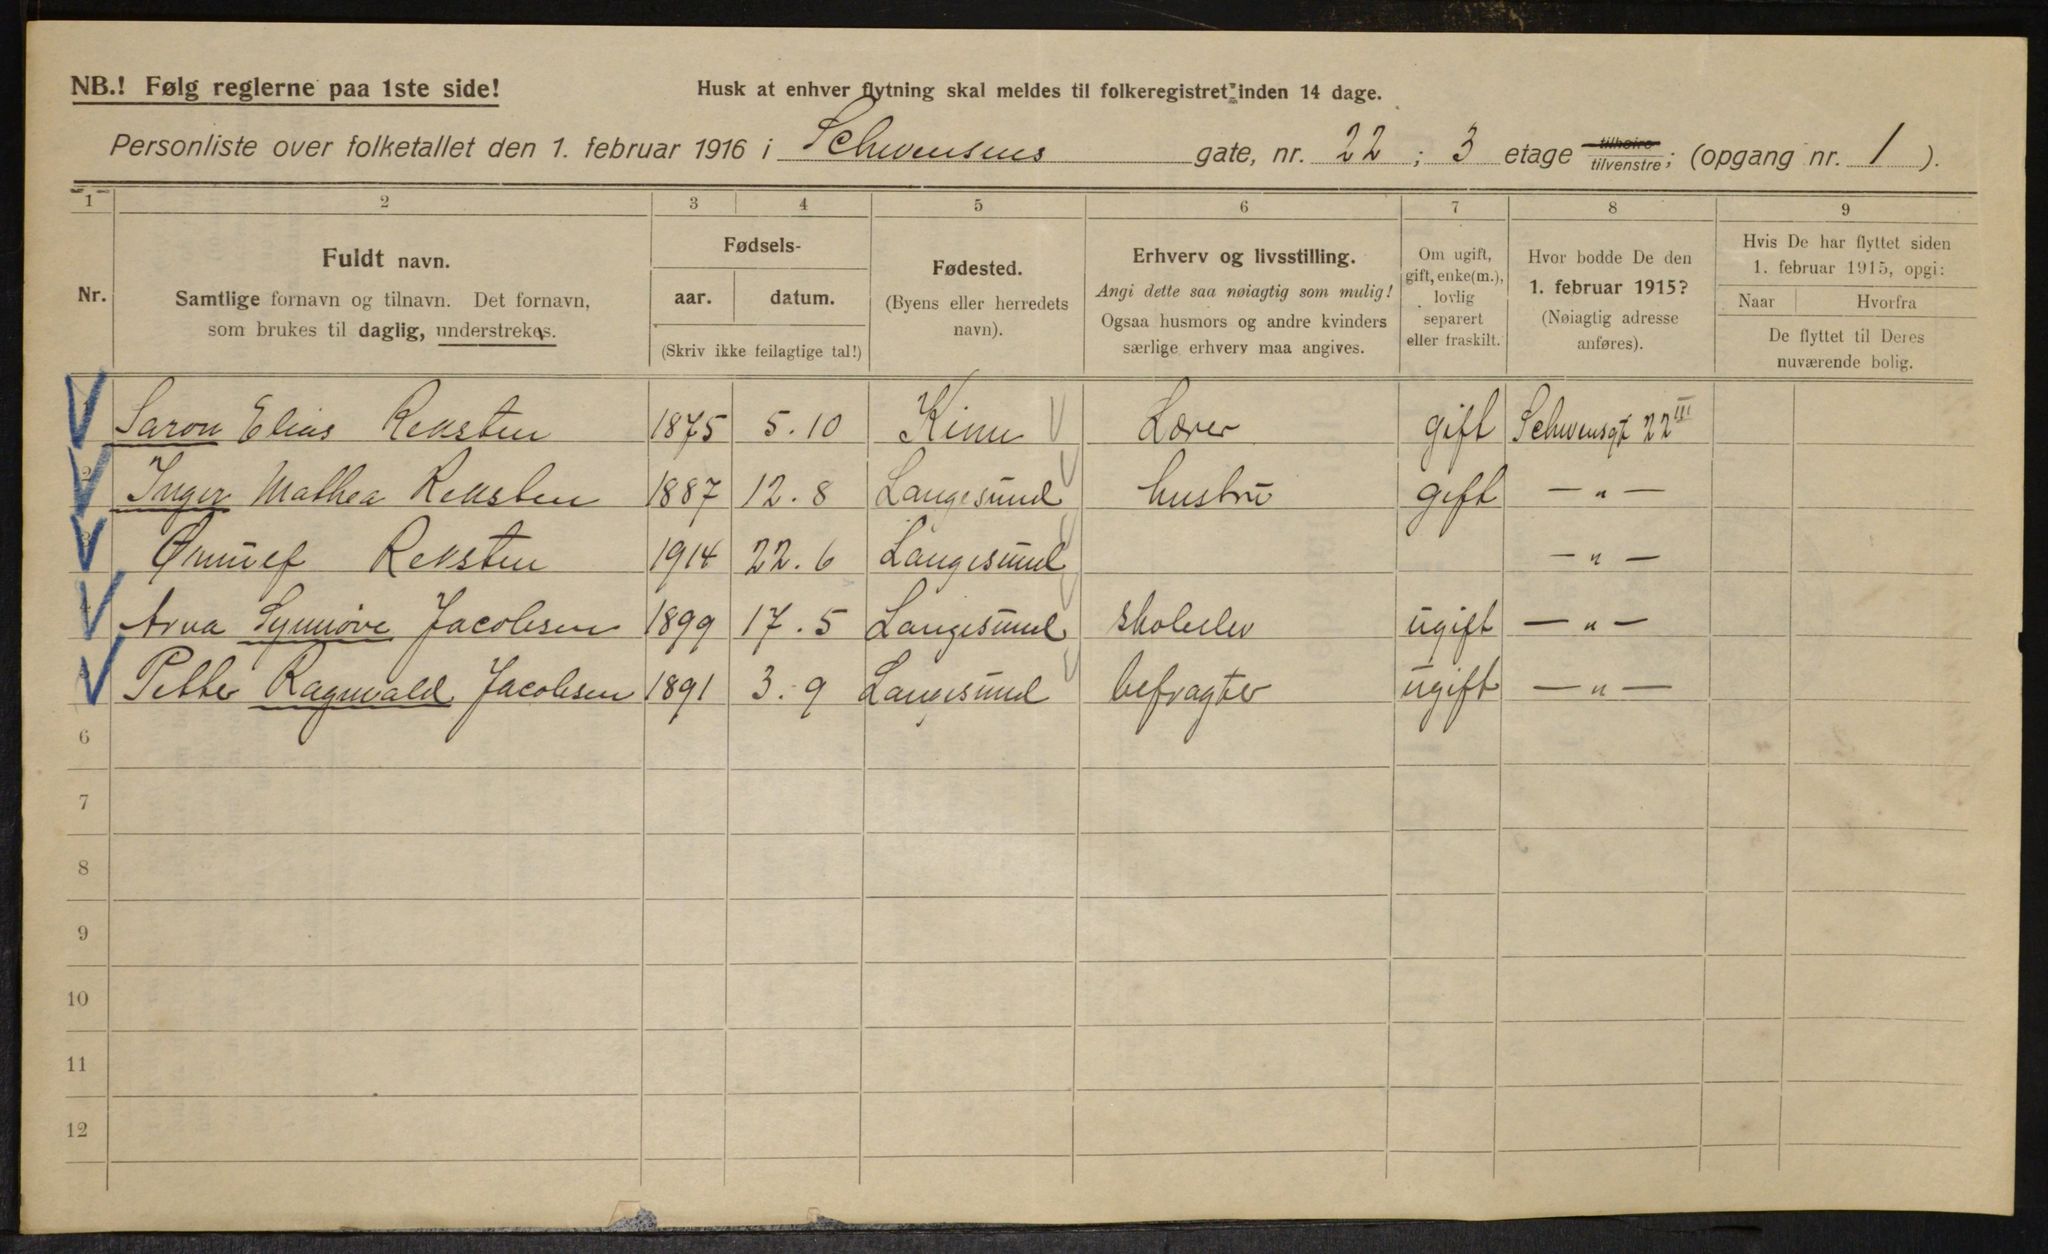 NB.! Følg reglerne paa 1ste side!
Husk at enhver flytning skal meldes til folkeregistret inden 14 dage.
Personliste over folketallet den 1. februar 1916 i Schwensens gate, nr. 22 ; 3 etage tilhøire tilvenstre; (opgang nr. 1 ).
1 2 3 4 5 6 7 8 9
Nr.
Fuldt navn.
Samtlige fornavn og tilnavn. Det fornavn,
som brukes til daglig, understrekes.
Fødsels-
aar. datum.
(Skriv ikke feilagtige tal!)
Fødested.
(Byens eller herredets
navn).
Erhverv og livsstilling.
Angi dette saa nøiagtig som mulig!
Ogsaa husmors og andre kvinders
særlige erhverv maa angives.
Om ugift,
gift, enke(m.),
lovlig
separert
eller fraskilt.
Hvor bodde De den
1. februar 1915?
(Nøiagtig adresse
anføres).
Hvis De har flyttet siden
1. februar 1915, opgi:
Naar Hvorfra
De flyttet til Deres
nuværende bolig.
1 Saron Elias Reksten 1875 5.10 Kinn Lærer gift Schwensgt 22 III
2 Inger Mathea Reksten 1887 12.8 Langesund hustru gift — " —
3 Reksten 1914 22.6 Langesund — " —
4 Arna Synnøve Jacobsen 1899 17.5 Langesund skoleelev ugift — " —
5 Petter Ragnvald Jacobsen 1891 3.9 Langesund befragter ugift — " —
6
7
8
9
10
11
12